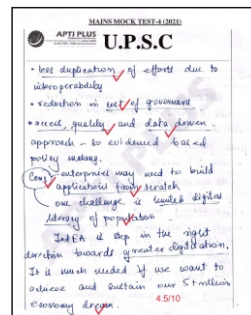 MAINS MOCK TEST-4 (2021)
APTI PLUS
U.P.S.C
• less duplication of efforts due to
interoperability
• reduction in cost of government
• access, quality and data driven
approach - to evidenced based
policy making.
Cons - enterprises may need to build
applications from scratch
- one challenge is limited digital
literacy of population
IndEA is step in the right
direction towards greater digitization.
It is much needed if we want to
achieve and sustain our $1 trillion
economy dream.
4.5/10